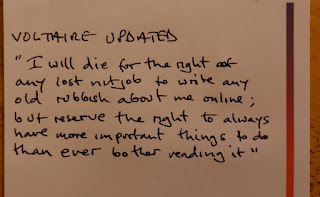 VOLTAIRE UPDATED
"I will die for the right of
any lost nutjob to write any
old rubbish about me online;
but reserve the right to always
have more important things to do
than ever bother reading it"